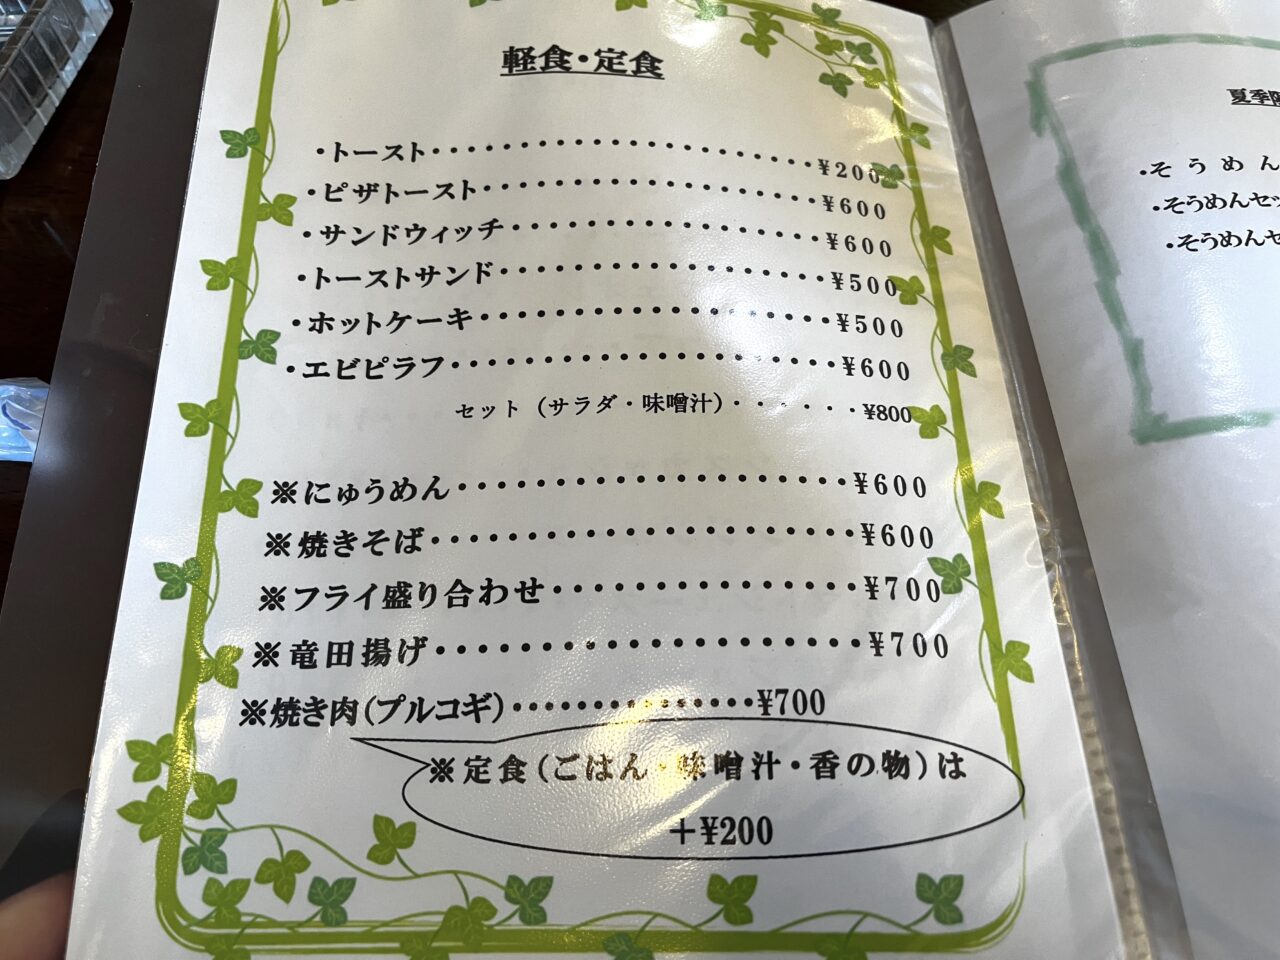 軽食・定食
・トースト・・・・・・・・・・・・・・・・・・・・・¥200
・ピザトースト・・・・・・・・・・・・・・・・・・¥600
・サンドウィッチ・・・・・・・・・・・・・・・・・¥600
・トーストサンド・・・・・・・・・・・・・・・・・¥500
・ホットケーキ・・・・・・・・・・・・・・・・・・¥500
・エビピラフ・・・・・・・・・・・・・・・・・・・・¥600
セット（サラダ・味噌汁）・・・・・・・¥800
※にゅうめん・・・・・・・・・・・・・・・・・・・・¥600
※焼きそば・・・・・・・・・・・・・・・・・・・・・¥600
※フライ盛り合わせ・・・・・・・・・・・・・・・¥700
※竜田揚げ・・・・・・・・・・・・・・・・・・・・・¥700
※焼き肉（プルコギ）・・・・・・・・・・・・・・・¥700
※定食（ごはん・味噌汁・香の物）は
＋¥200
夏季
・そうめん
・そうめんセッ
・そうめんセ